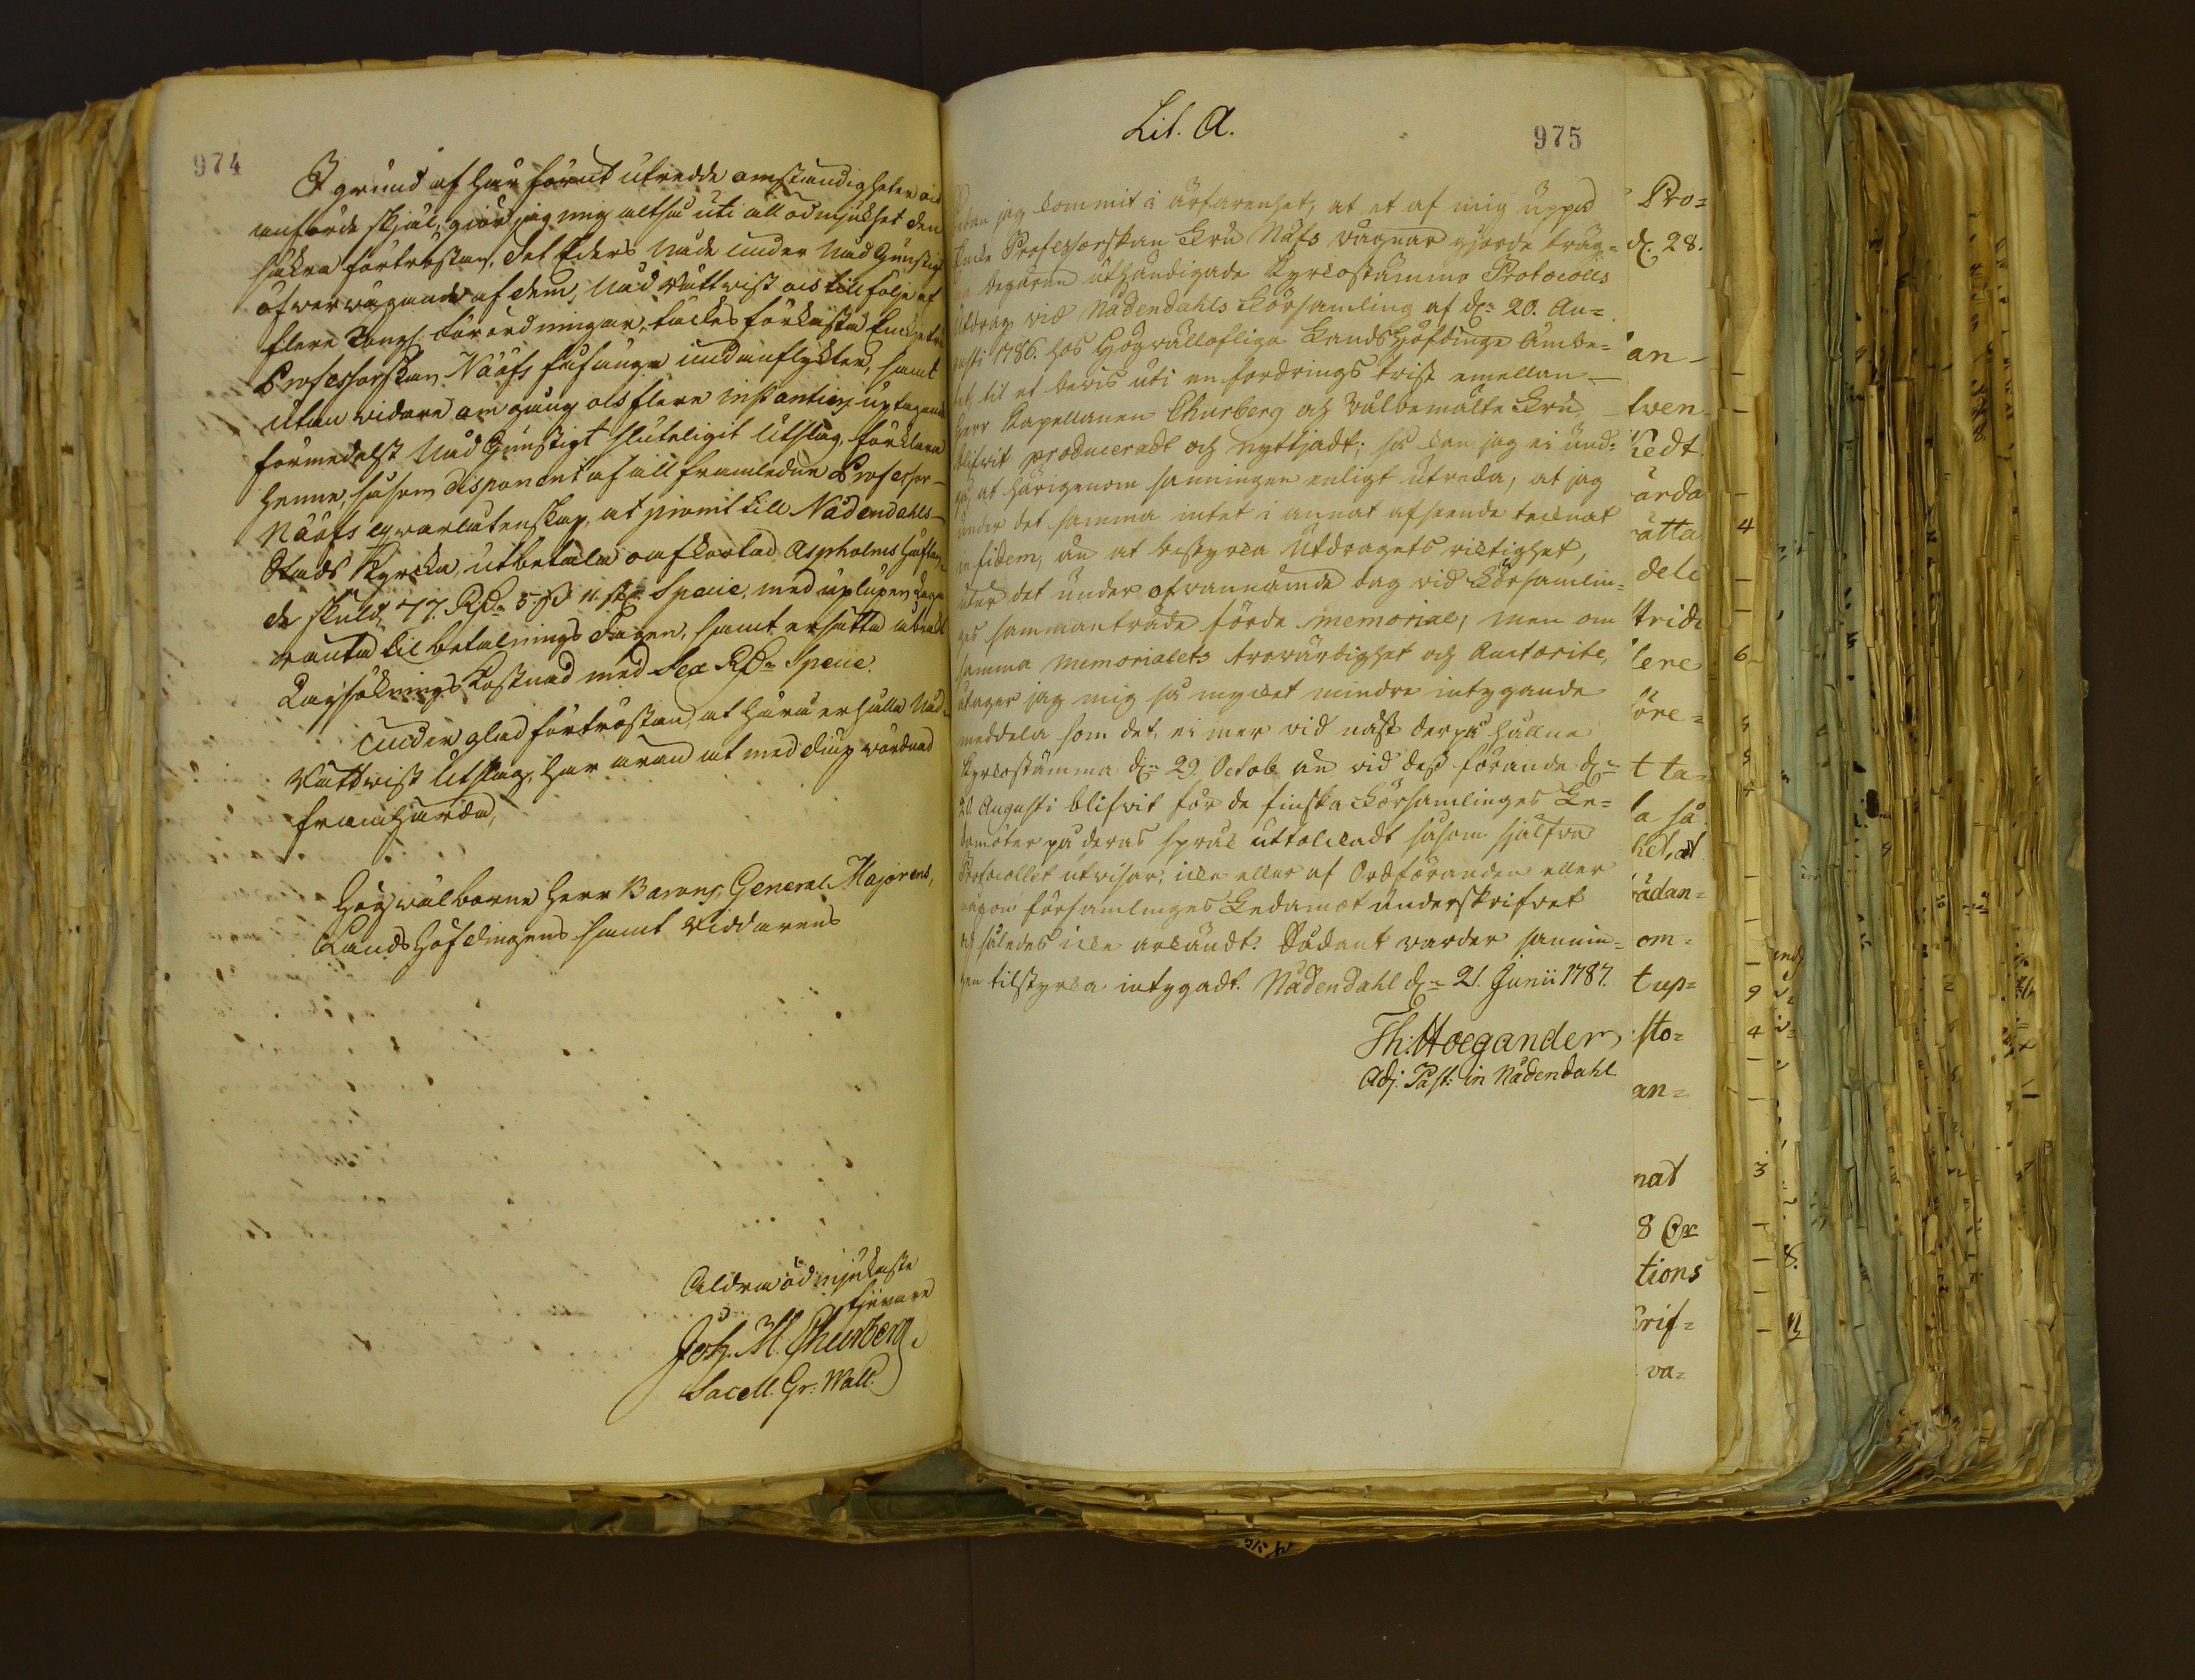 974
I grund af här förut utredde omständigheter och
anförde skjäl, giör jag mig altså uti all ödmjukhet den
säkra förtröstan, det Eders Nåde under Nåd Gunstigt
öfwerwägande af dem, Nåd Rättwist och till följe af
flere Kongl. Förordningar, täckes förkasta Enkje Fru
Professorskan Nääfs fåfänga undanflykter, samt
utan widare om gång och flere instantiers uptagande
förmedelst Nåd Gunstigt sluteligit Utslag, förklara
henne, såsom disponent af all framledne Professor
Nääfs qwarlåtenskap, at promt till Nådendahls
Stads Kyrcka, utbetala oafkortad Aspholms häftan-
de skuld, 77. Rdr 5 ß 11. rst Specie, med uplupen Laga
ränta til betalnings dagen, samt ersätta
Lagsöknings Kostnad med Sex Rdr Specie.
Under glad förtröstan, at härå erhålla Nåd-
Rättwist Utslag, har äran at med diup wördnad
framhärda,
Högwälborne Herr Barons, General Majorens,
Lands Höfdingens samt Riddarens
Aldra ödmjukaste
tjenare
Joh. M. Churberg
Sacell. Gr. Wall.
Lit. A.
975
jag kommit i ärfarenhet, at et af mig uppå
Professorskan Fru Näfs wägnar gjorde träg-
begäran uthändigade Kyrkostämmo Protocolls
Utdrag wid Nådendahls Församling af dn 20. Au-
gusti 1786. hos Högwällofliga Landshöfdinge Ämbe-
tet, til et bewis uti en fordrings twist emellan
Herr Kapellanen Churberg och Wälbemälte Fru
blifwit producerat och nyttjadt; så kan jag ei und-
gå, at härigenom sanningen enligt utreda, at jag
under det samma intet i annat afseende tecknat
in fidem, än at bestyrka Utdragets riktighet,
utur det under ofwannämde dag wid Församlin-
ges sammanträde förde memorial; men om
samma Memorialets trowärdighet och Auctorite,
åtager jag mig så mycket mindre intygande
meddela som det, ei mer wid näst derpå hållne
Kyrkostämma dn 29. Octob. än wid dess förande dn
20. Augusti blifwit för de finska Församlinges Le-
damöter på deras språk uttolckadt såsom sjelfwa
Protocollet utwisar; icke eller af Ordföranden eller
någon församlinges Ledamot underskrifwet
och således icke erkändt. Sådant warder sannin-
gen tilstyrka intygadt. Nådendahl dn 21. Junii 1787.
Th: Hoegander
Adj. Past: in Nådendahl
Pro-
d. 28.
an-
twen
kedt.
ärda
ätta
dele
trids
lere
öre-
t ta-
la så
het, at
ådan-
om-
t up-
sto-
an-
nat
8
tions
krif-
va-
4
6
9
4
3